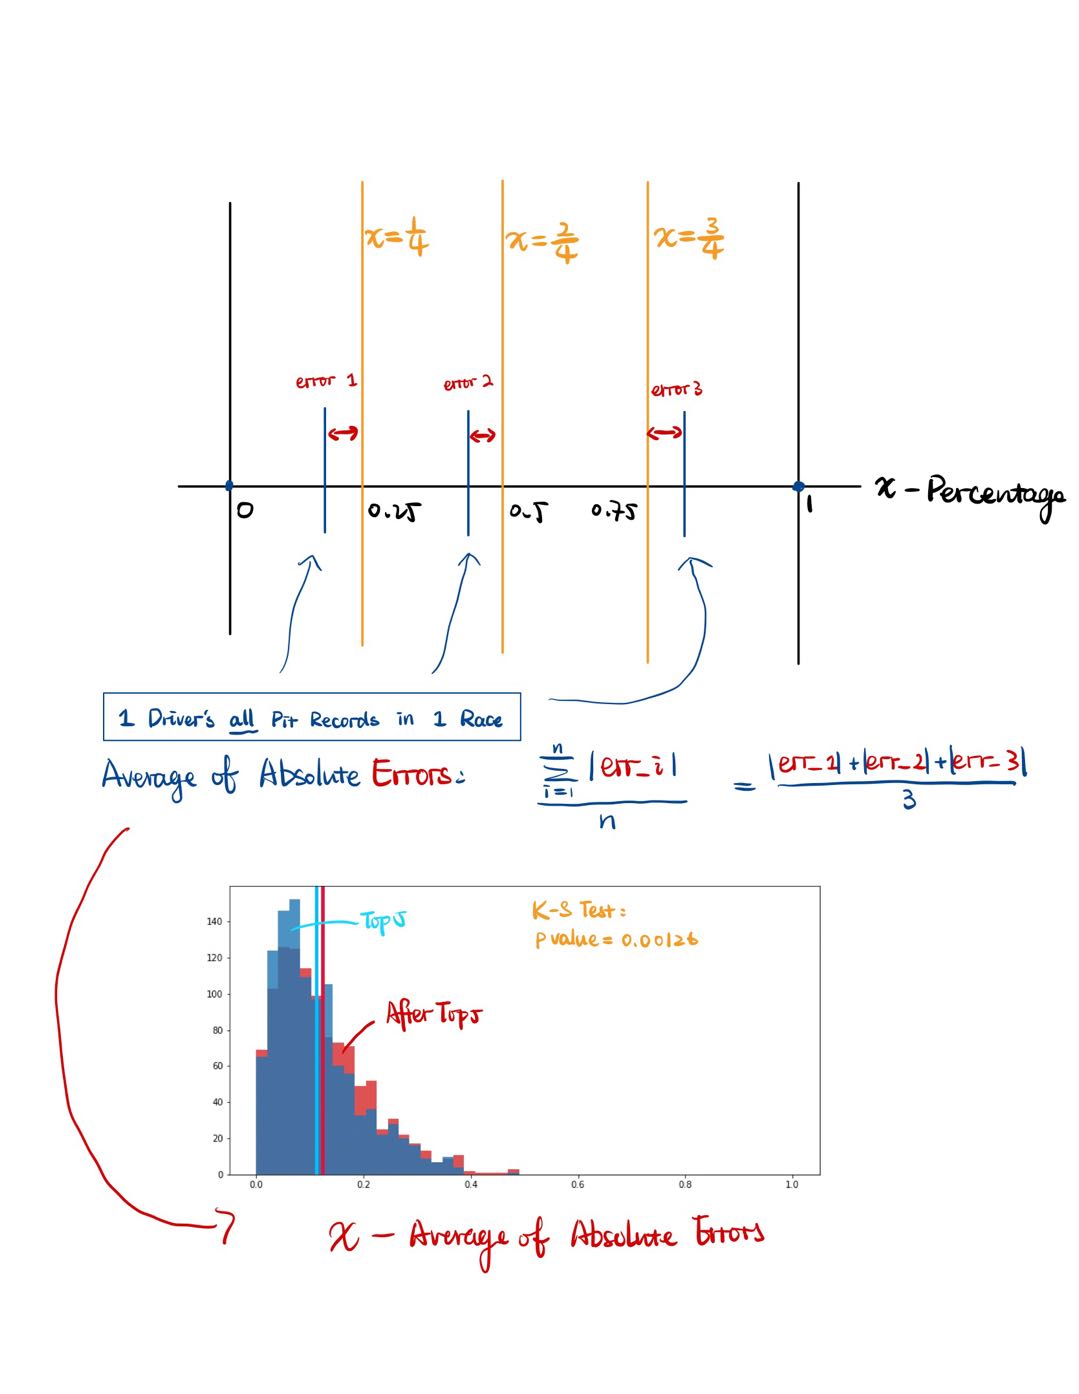 x=1/4
x=2/4
x=3/4
error 1
error 2
error 3
x - Percentage
0
0.25
0.5
0.75
1
1 Driver's all Pit Records in 1 Race
Average of Absolute Errors: ∑_{i=1}^{n} |err_i| / n = |err_1|+|err_2|+|err_3| / 3
K-S Test:
P value = 0.00126
Top5
After Top5
140
120
100
80
60
40
20
0
0.0 0.2 0.4 0.6 0.8 1.0
x - Average of Absolute Errors